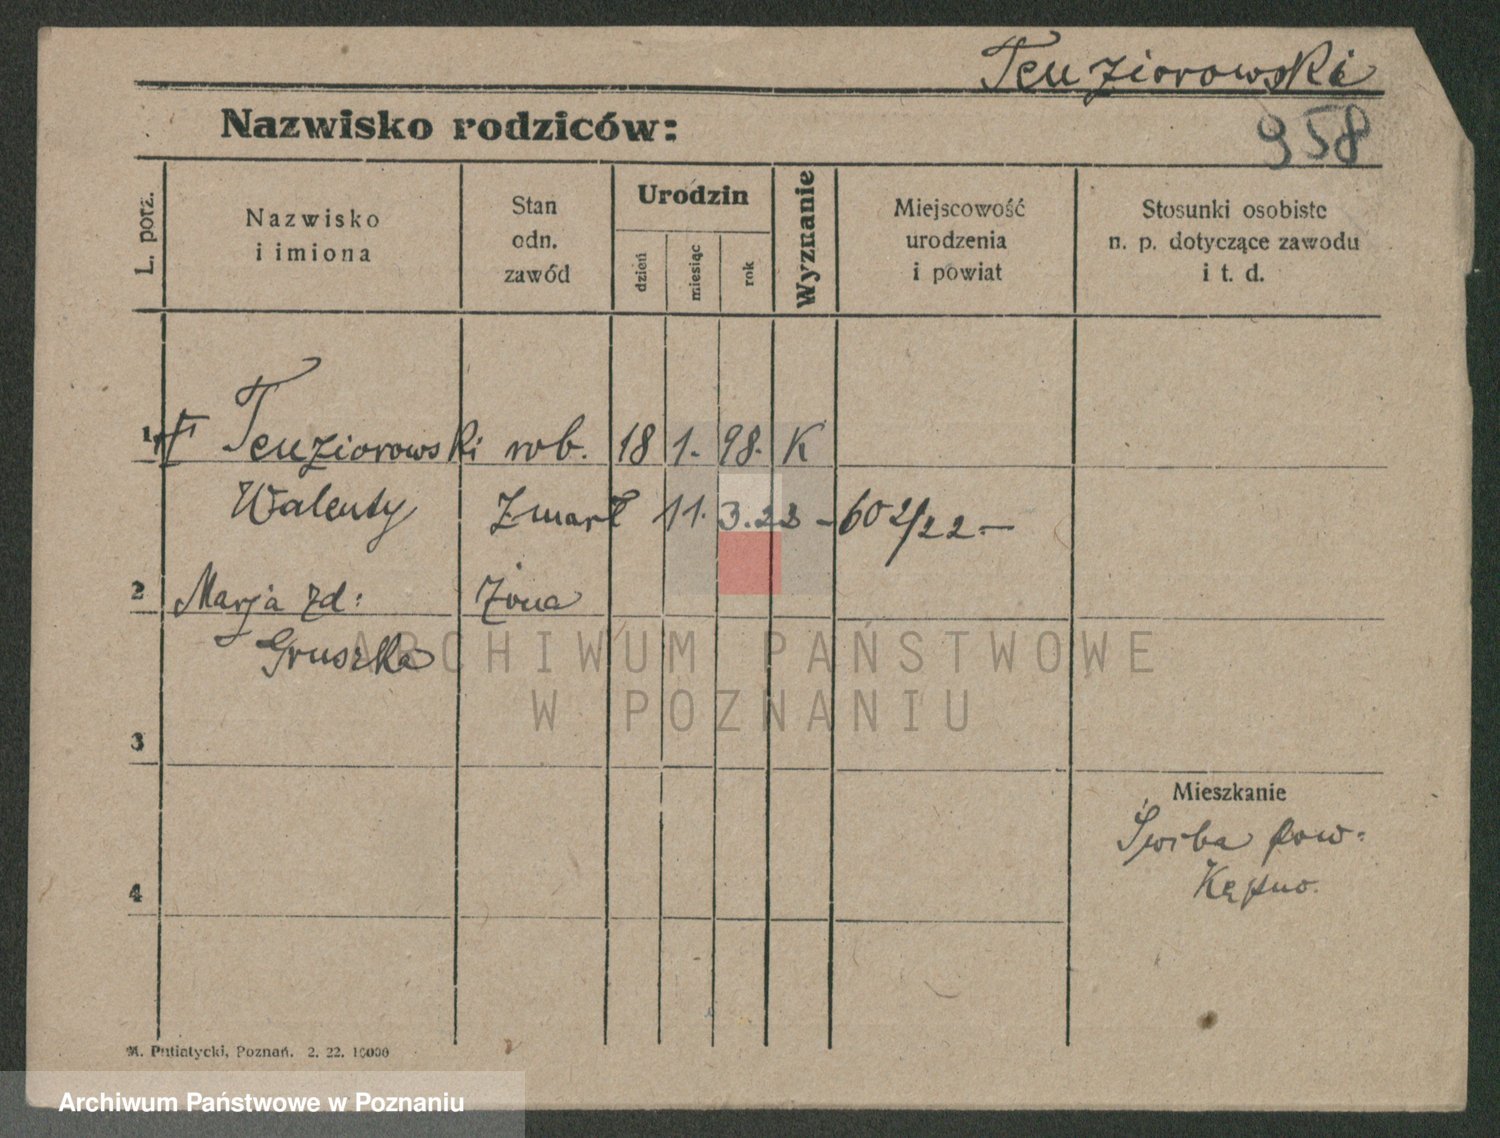 Teuziorowski
Nazwisko rodziców:
958
L. porz.
Nazwisko
i imiona
Stan
odn.
zawód
Urodzin
dzień
miesiąc
rok
Wyznanie
Miejscowość
urodzenia
i powiat
Stosunki osobiste
n. p. dotyczące zawodu
i t. d.
1 Teuziorowski rob. 18 1. 98. K
Walenty Zmarł 11. 3. 22 - 602/22.-
2 Marja zd: Żona
Gruszka
3
Mieszkanie
Świba pow.
Kępno.
4
M. Putiatycki, Poznań. 2. 22. 10000
ARCHIWUM PAŃSTWOWE
W POZNANIU
Archiwum Państwowe w Poznaniu